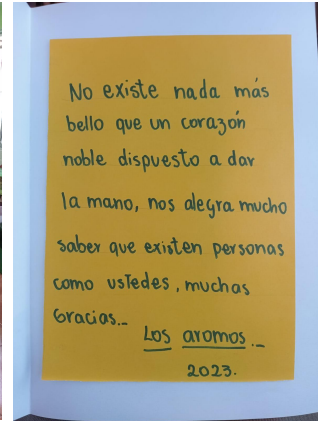 No existe nada más
bello que un corazón
noble dispuesto a dar
la mano, nos alegra mucho
saber que existen personas
como ustedes, muchas
Gracias..-
Los aromos..-
2023.